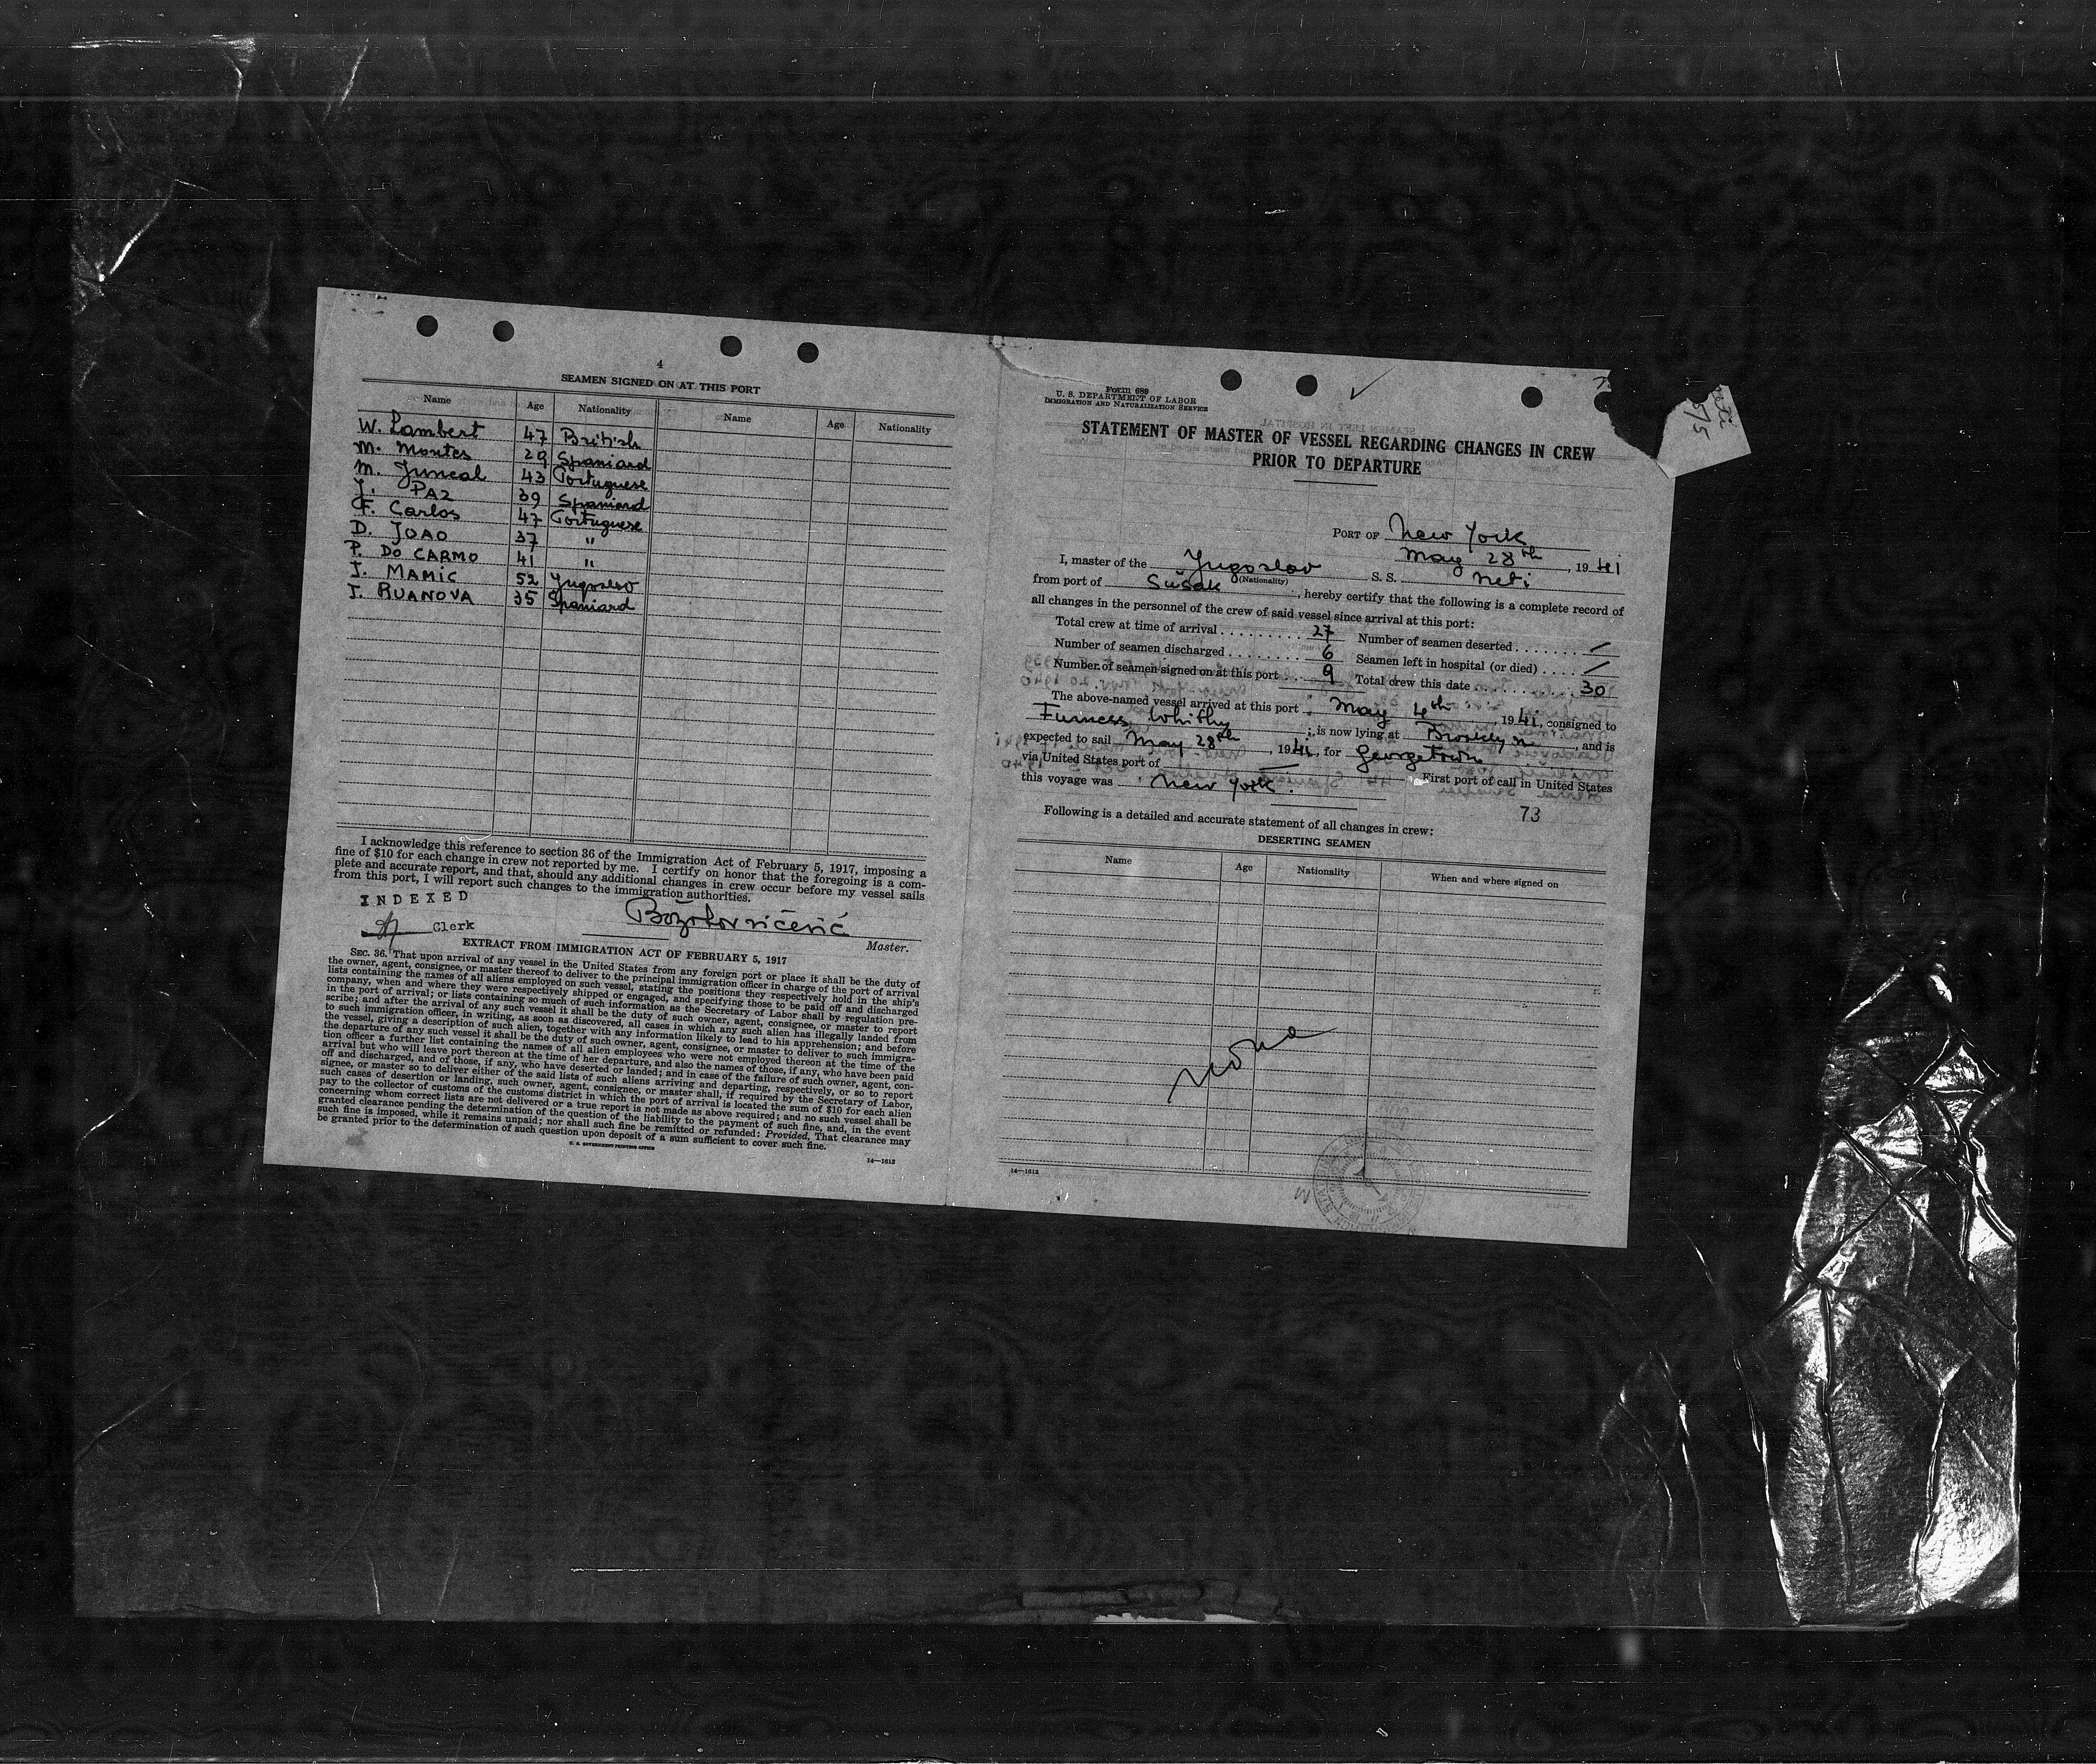 4
SEAMEN SIGNED ON AT THIS PORT
Name Age Nationality Name Age Nationality
W. Lambert 47 British
M. Montes 29 Spaniard
M. Juncal 43 Portuguese
J. PAZ 39 Spaniard
F. Carlos 47 Portuguese
D. JOAO 37 "
P. DO CARMO 41 "
I. MAMIC 52 Yugoslav
J. RUANOVA 35 Spaniard
I acknowledge this reference to section 36 of the Immigration Act of February 5, 1917, imposing a
fine of $10 for each change in crew not reported by me. I certify on honor that the foregoing is a com-
plete and accurate report, and that, should any additional changes in crew occur before my vessel sails
from this port, I will report such changes to the immigration authorities.
INDEXED
Clerk
Master.
EXTRACT FROM IMMIGRATION ACT OF FEBRUARY 5, 1917
SEC. 36. That upon arrival of any vessel in the United States from any foreign port or place it shall be the duty of
the owner, agent, consignee, or master thereof to deliver to the principal immigration officer in charge of the port of arrival
lists containing the names of all aliens employed on such vessel, stating the positions they respectively hold in the ship's
company, when and where they were respectively shipped or engaged, and specifying those to be paid off and discharged
in the port of arrival; or lists containing so much of such information as the Secretary of Labor shall by regulation pre-
scribe; and after the arrival of any such vessel it shall be the duty of such owner, agent, consignee, or master to report
to such immigration officer, in writing, as soon as discovered, all cases in which any such alien has illegally landed from
the vessel, giving a description of such alien, together with any information likely to lead to his apprehension; and before
the departure of any such vessel it shall be the duty of such owner, agent, consignee, or master to deliver to such immigra-
tion officer a further list containing the names of all alien employees who were not employed thereon at the time of the
arrival but who will leave port thereon at the time of her departure, and also the names of those, if any, who have been paid
off and discharged, and of those, if any, who have deserted or landed; and in case of the failure of such owner, agent, con-
signee, or master so to deliver either of the said lists of such aliens arriving and departing, respectively, or so to report
such cases of desertion or landing, such owner, agent, consignee, or master shall, if required by the Secretary of Labor,
pay to the collector of customs of the customs district in which the port of arrival is located the sum of $10 for each alien
concerning whom correct lists are not delivered or a true report is not made as above required; and no such vessel shall be
granted clearance pending the determination of the question of the liability to the payment of such fine, and, in the event
such fine is imposed, while it remains unpaid; nor shall such fine be remitted or refunded: Provided, That clearance may
be granted prior to the determination of such question upon deposit of a sum sufficient to cover such fine.
U. S. GOVERNMENT PRINTING OFFICE
14—1612
Form 689
U. S. DEPARTMENT OF LABOR
IMMIGRATION AND NATURALIZATION SERVICE
STATEMENT OF MASTER OF VESSEL REGARDING CHANGES IN CREW
PRIOR TO DEPARTURE
PORT OF New York
May 28th, 1941
I, master of the Yugoslav S. S. Neti
(Nationality)
from port of Sušak, hereby certify that the following is a complete record of
all changes in the personnel of the crew of said vessel since arrival at this port:
Total crew at time of arrival 27 Number of seamen deserted /
Number of seamen discharged 6 Seamen left in hospital (or died) /
Number of seamen signed on at this port 9 Total crew this date 30
The above-named vessel arrived at this port May 4th, 1941, consigned to
Furness, Whithy; is now lying at Brooklyn, and is
expected to sail May 28th, 1941, for Georgetown
via United States port of —
First port of call in United States
this voyage was New York.
73
Following is a detailed and accurate statement of all changes in crew:
DESERTING SEAMEN
Name Age Nationality When and where signed on
None
14—1612